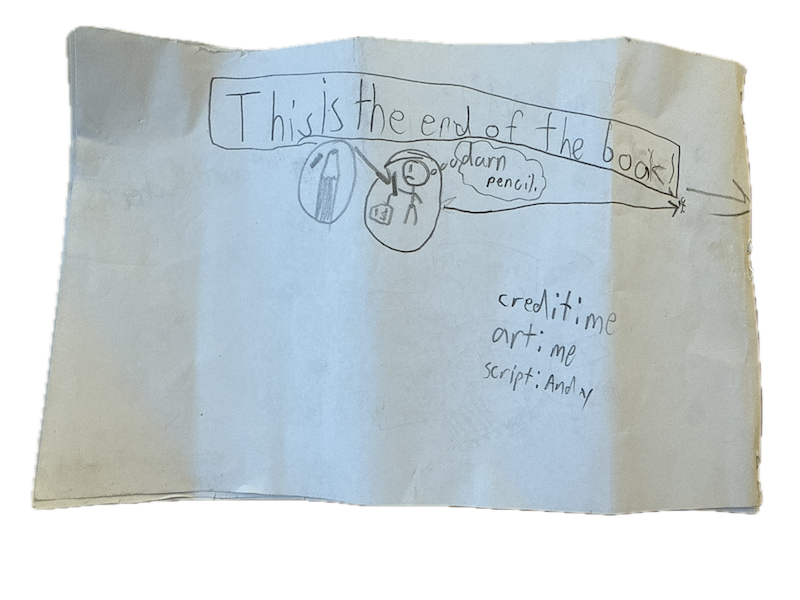 This is the end of the book!
darn
pencil.
credit:me
art:me
script:Andy